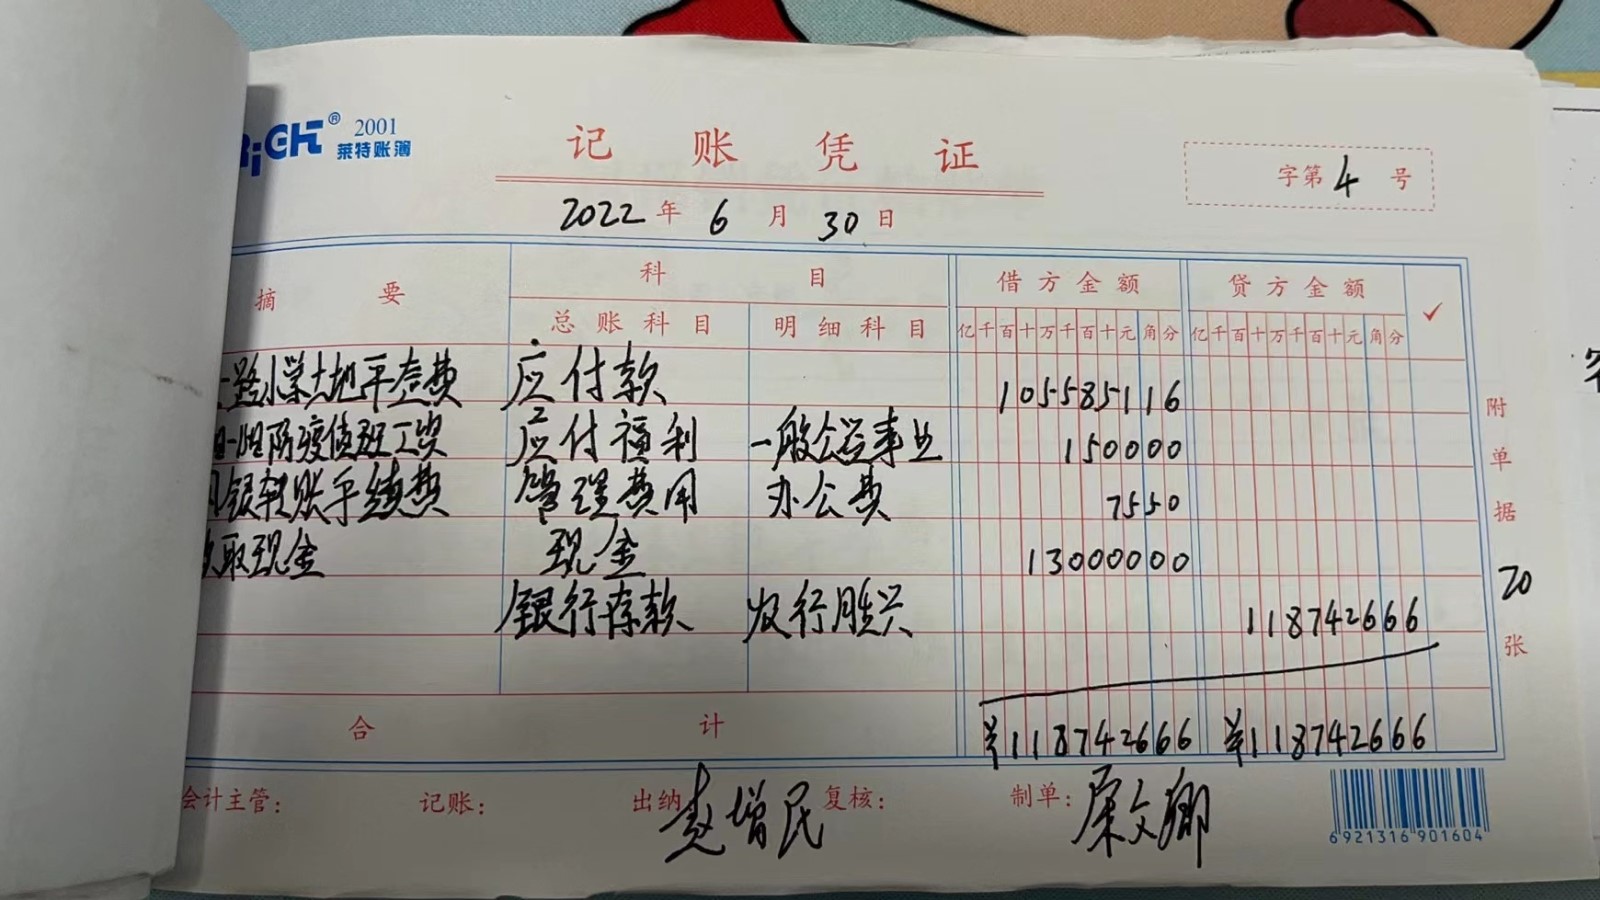 RiGHT® 2001
莱特账簿
记 账 凭 证
字第 4 号
2022 年 6 月 30 日
摘 要 科 目 借方金额 贷方金额 ✓
总账科目 明细科目 亿千百十万千百十元角分 亿千百十万千百十元角分
路小学土地平整费 应付款 105585116
防疫值班工资 应付福利 一般公益事业 150000
银转账手续费 管理费用 办公费 7550
取现金 现金 13000000
银行存款 农行胜兴 118742666
合 计 ¥118742666 ¥118742666
附单据 20 张
会计主管: 记账: 出纳 赵增民 复核: 制单: 文卿
6921316901604